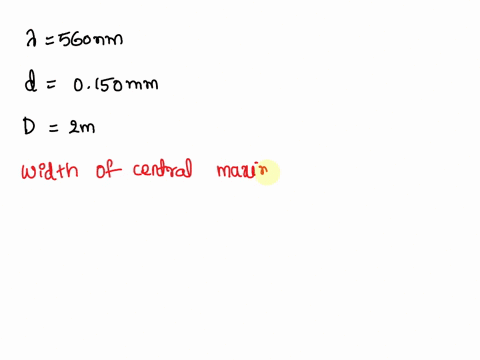 λ = 560nm
d = 0.150mm
D = 2m
width of central maxim